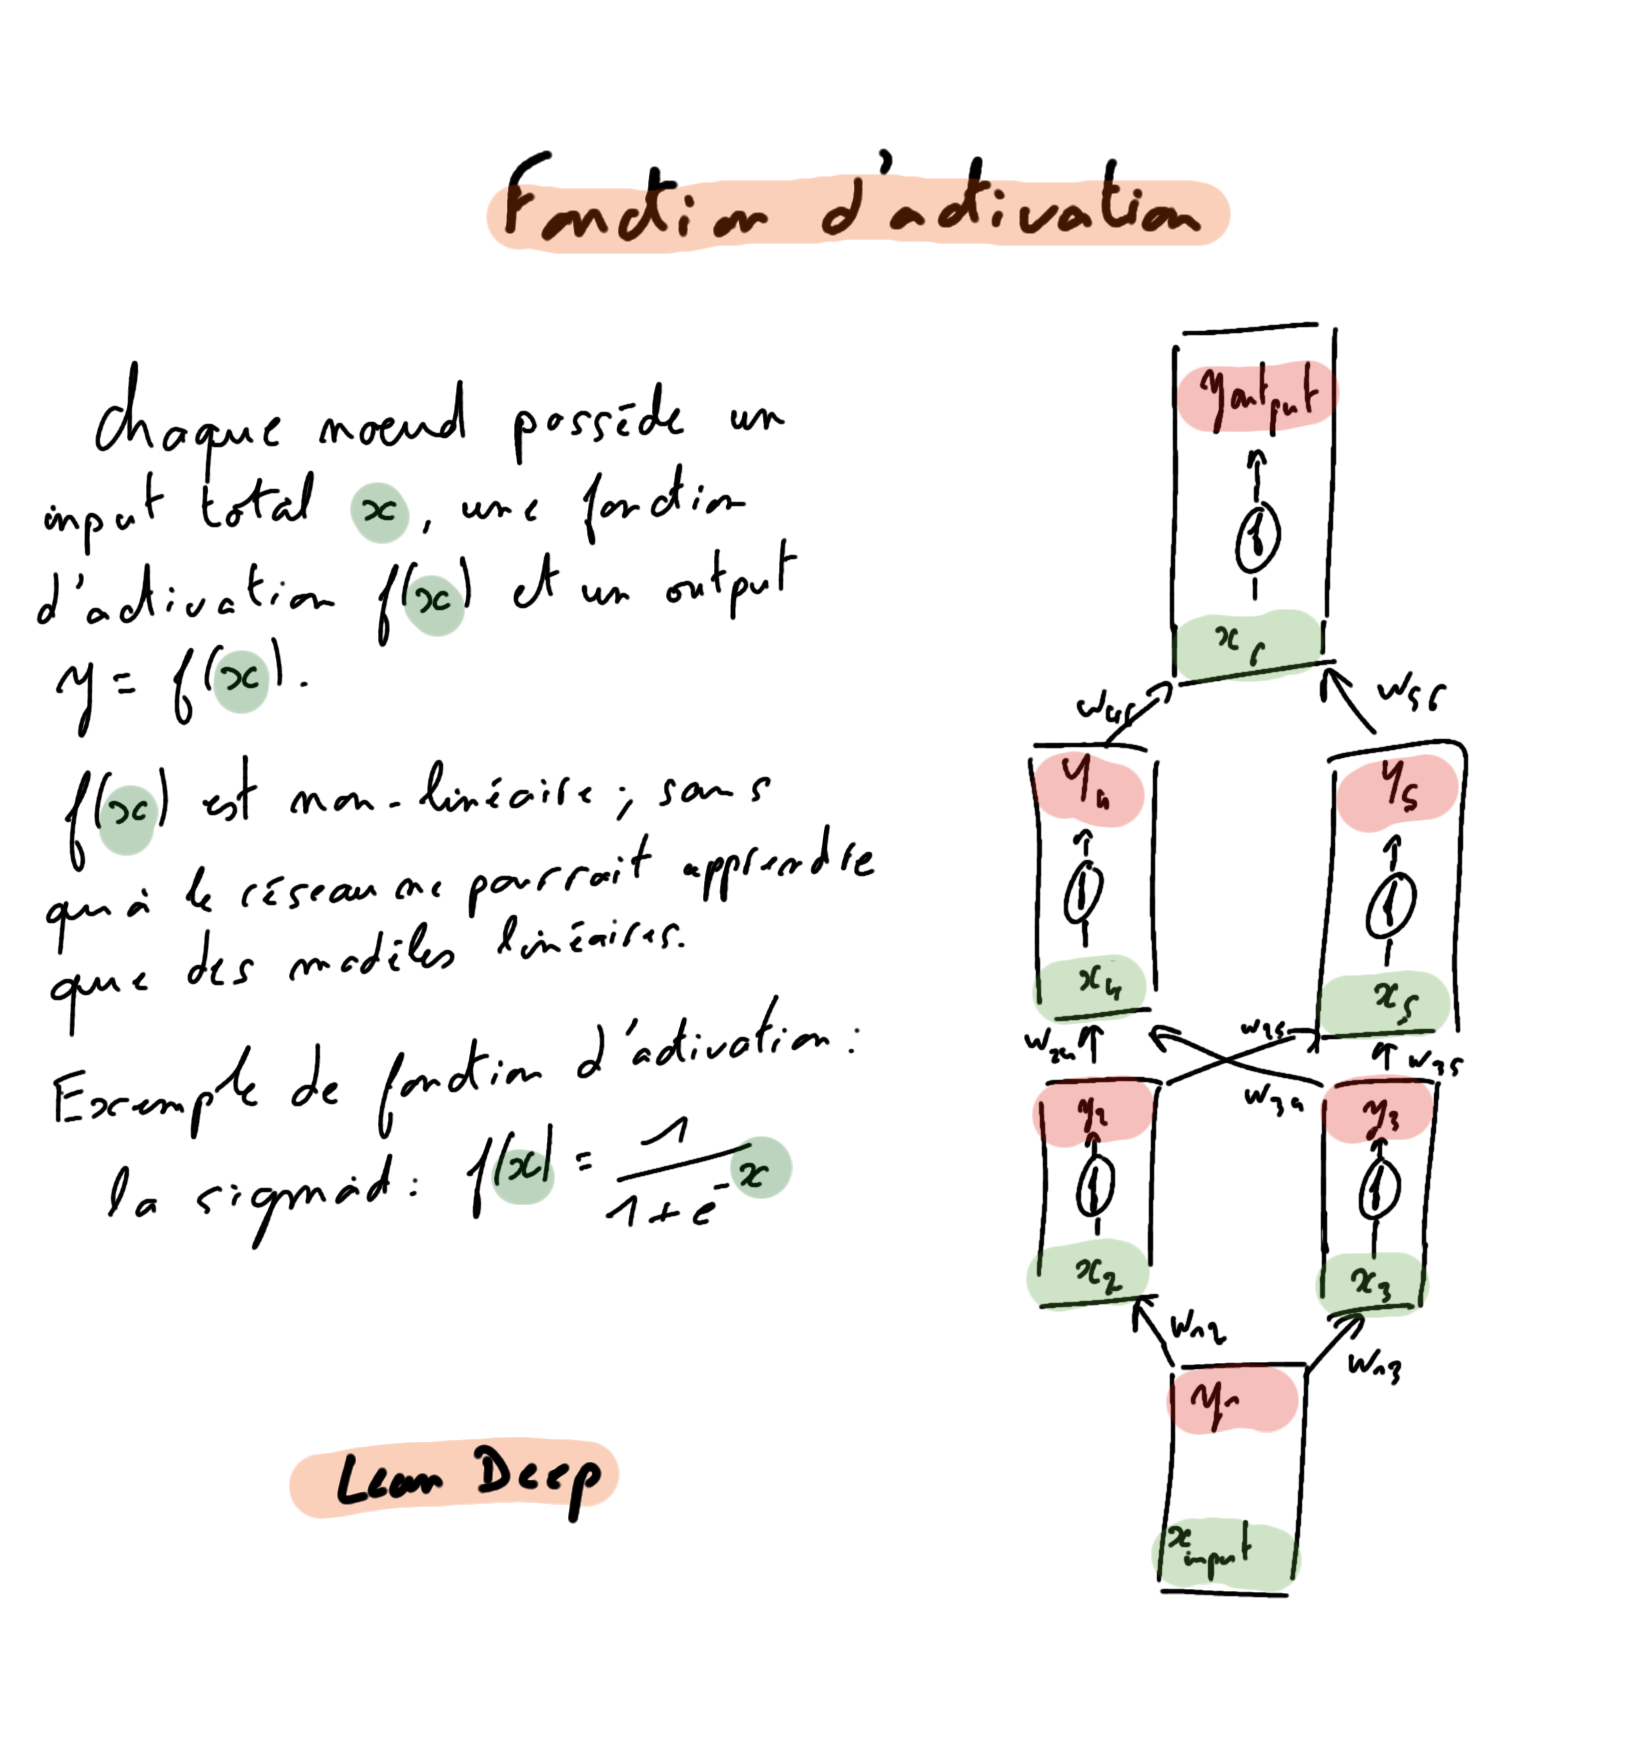 Fonction d'activation
Chaque noeud possède un
input total x, une fonction
d'activation f(x) et un output
y = f(x).
f(x) est non-linéaire ; sans
quoi le réseau ne pourrait apprendre
que des modèles linéaires.
Exemple de fonction d'activation :
la sigmoid : f(x) = 1 / 1 + e^-x
Lean Deep
y output
f
x6
w46
w56
y4
y5
f
f
x4
x5
w24
w25
w34
w35
y2
y3
f
f
x2
x3
w12
w13
y1
x input